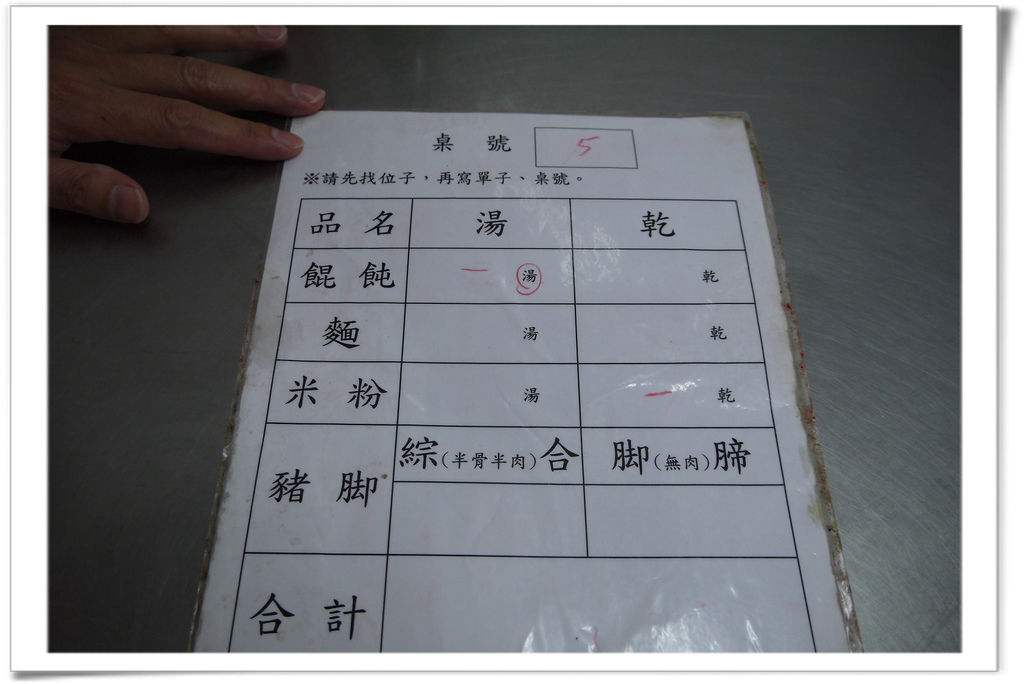 桌 號 5
※請先找位子，再寫單子、桌號。
品 名 湯 乾
餛 飩 一 湯 乾
麵 湯 乾
米 粉 湯 一 乾
豬 脚 綜(半骨半肉)合 脚(無肉)膪
合 計